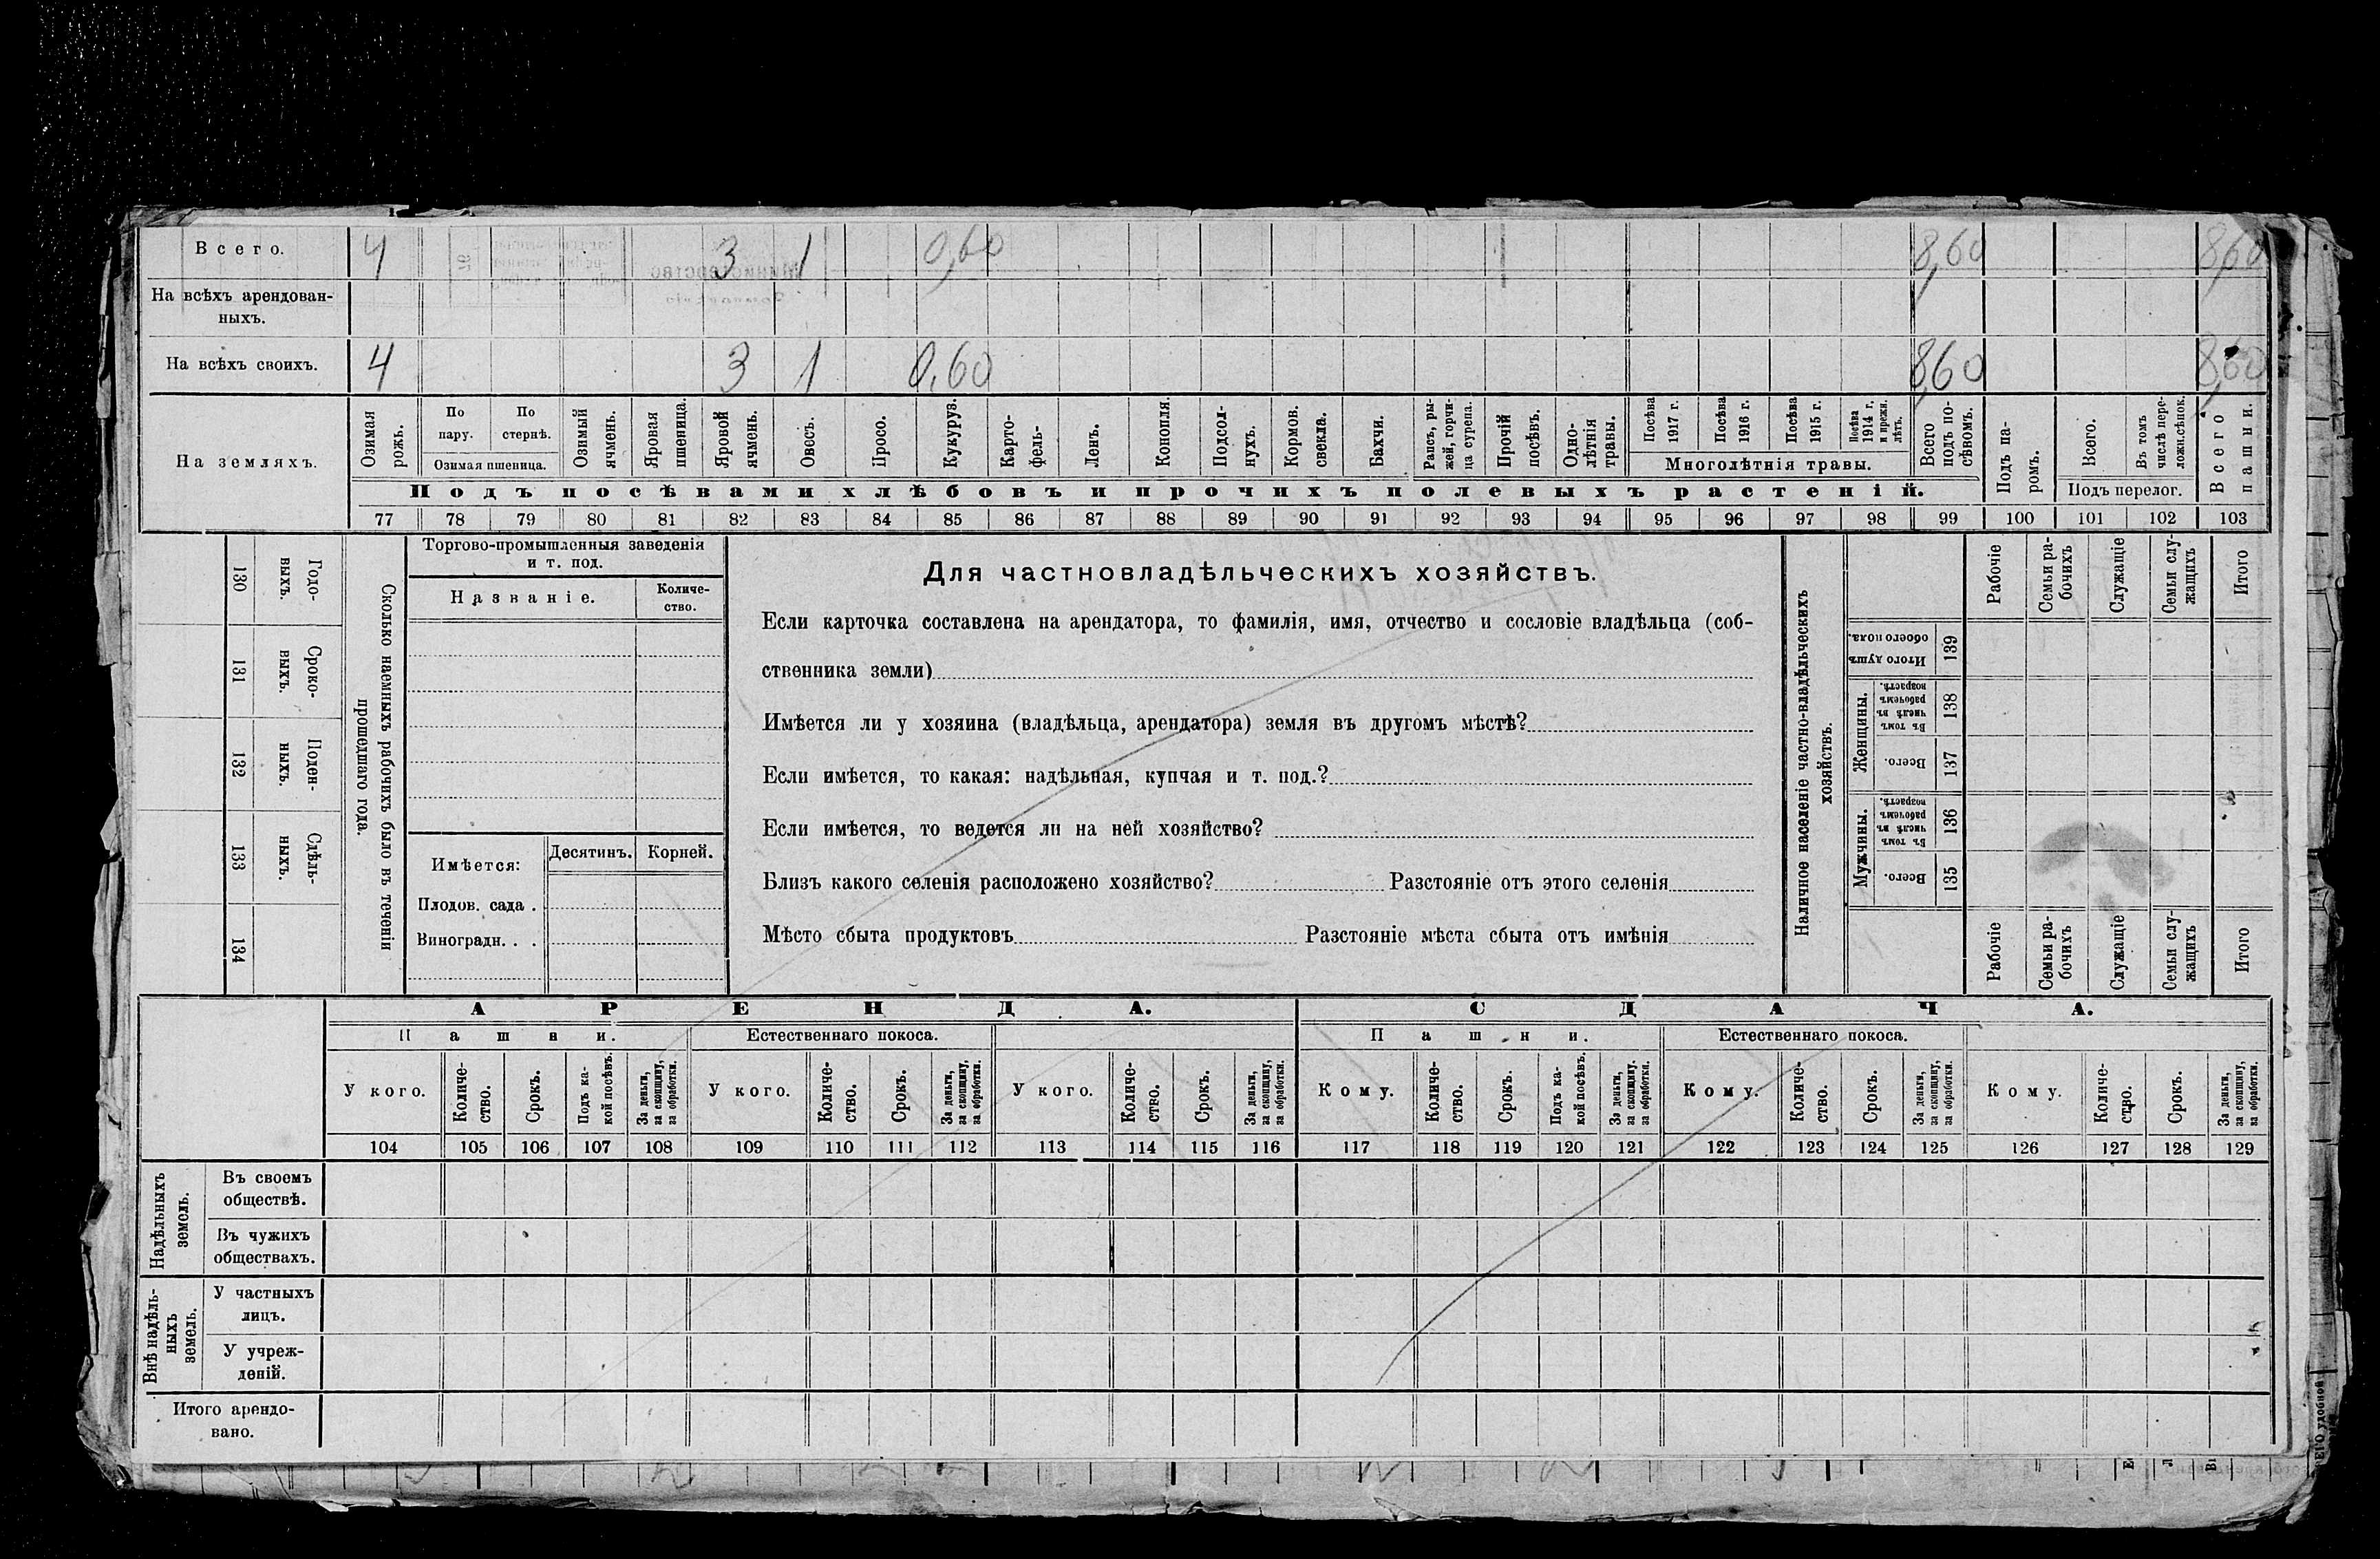 Всего. 4 3 1 0,60 8,60 8,60
На всѣхъ арендован-
ныхъ.
На всѣхъ своихъ. 4 3 1 0,60 8,60 8,60
На земляхъ.
Озимая рожь.
По пару.
По стернѣ.
Озимая пшеница.
Озимый ячмень.
Яровая пшеница.
Яровой ячмень.
Овесъ.
Просо.
Кукуруз.
Карто-
фель-
Ленъ.
Конопля.
Подсол-
нухъ.
Кормов. свекла.
Бахчи.
Рапсъ, ры-
жей, горчи-
ца сурепа.
Прочій посѣвъ.
Одно-
лѣтнія
травы.
Посѣва 1917 г.
Посѣва 1916 г.
Посѣва 1915 г.
Посѣва 1914 г. и прежн. лѣтъ.
Многолѣтнія травы.
Всего подъ по-
сѣвомъ.
Подъ па-
ромъ.
Всего.
Въ томъ числѣ пере-
ложн.сѣнок.
Подъ перелог.
Всего пашни.
Подъ посѣвами хлѣбовъ и прочихъ полевыхъ растеній.
77 78 79 80 81 82 83 84 85 86 87 88 89 90 91 92 93 94 95 96 97 98 99 100 101 102 103
130 Годо-
выхъ.
131 Сроко-
выхъ.
132 Поден-
ныхъ.
133 Сдѣль-
ныхъ.
134
Сколько наемныхъ рабочихъ было въ теченіи
прошедшаго года.
Торгово-промышленныя заведенія
и т. под.
Названіе.
Количе-
ство.
Имѣется: Десятинъ. Корней.
Плодов. сада .
Виноградн. . .
Для частновладѣльческихъ хозяйствъ.
Если карточка составлена на арендатора, то фамилія, имя, отчество и сословіе владѣльца (соб-
ственника земли)
Имѣется ли у хозяина (владѣльца, арендатора) земля въ другомъ мѣстѣ?
Если имѣется, то какая: надѣльная, купчая и т. под.?
Если имѣется, то ведется ли на ней хозяйство?
Близъ какого селенія расположено хозяйство? Разстояніе отъ этого селенія
Мѣсто сбыта продуктовъ Разстояніе мѣста сбыта отъ имѣнія
Наличное населеніе частно-владѣльческихъ
хозяйствъ.
Рабочіе
Семьи ра-
бочихъ
Служащіе
Семьи слу-
жащихъ
Итого
Итого душъ обоего пола. 139
Женщины.
Въ томъ числѣ въ рабочемъ возрастѣ. 138
Всего. 137
Мужчины.
Въ томъ числѣ въ рабочемъ возрастѣ. 136
Всего. 135
Рабочіе
Семьи ра-
бочихъ
Служащіе
Семьи слу-
жащихъ
Итого
АРЕНДА. СДАЧА.
Пашни. Естественнаго покоса. Пашни. Естественнаго покоса.
У кого.
Количе-
ство.
Срокъ.
Подъ ка-
кой посѣвъ.
За деньги,
за скопщину,
за обработки.
У кого.
Количе-
ство.
Срокъ.
За деньги,
за скопщину,
за обработки.
У кого.
Количе-
ство.
Срокъ.
За деньги,
за скопщину,
за обработки.
Кому.
Количе-
ство.
Срокъ.
Подъ ка-
кой посѣвъ.
За деньги,
за скопщину,
за обработки.
Кому.
Количе-
ство.
Срокъ.
За деньги,
за скопщину,
за обработки.
Кому.
Количе-
ство.
Срокъ.
За деньги,
за скопщину,
за обработки.
104 105 106 107 108 109 110 111 112 113 114 115 116 117 118 119 120 121 122 123 124 125 126 127 128 129
Надѣльныхъ
земель.
Въ своемъ
обществѣ.
Въ чужихъ
обществахъ.
Внѣ надѣль-
ныхъ
земель.
У частныхъ
лицъ.
У учреж-
деній.
Итого арендо-
вано.